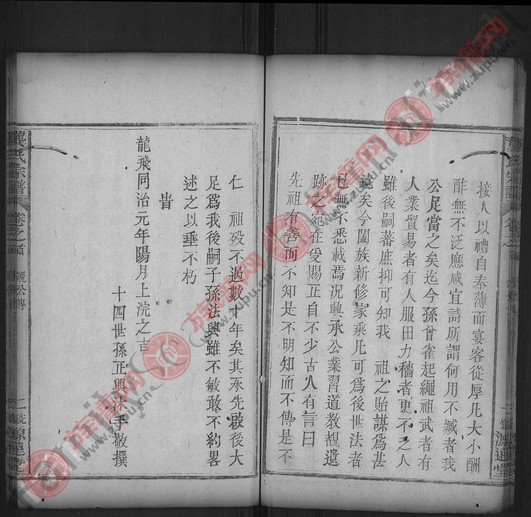 接人以禮自奉薄而宴客從厚凡大小酬
酢無不泛應咸宜詩所謂何用不臧者我
公足當之矣迄今孫曾雀起繩祖武者有
人業貿易者有人服田力穡者更不乏人
雖後嗣蕃庶抑可知我 祖之貽謀爲甚
矣今闔族新修家乘凡可爲後世法者
無不悉載焉况興承公業習道教覩遺
跡之
先祖有善而不知是不明知而不傳是不
仁 祖歿不過數十年矣其承先啟後大
足爲我後嗣子孫法興雖不敏敢不畧
述之以垂不朽
旹
龍飛同治元年陽月上浣之吉
十四世孫正興沐手敬撰
龔氏宗譜
卷之首
族譜网
www.zupu.cn